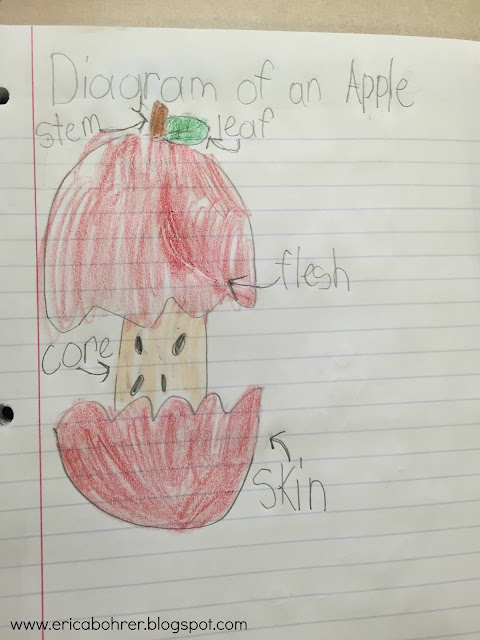 Diagram of an Apple
stem leaf
flesh
core
skin
www.ericabohrer.blogspot.com